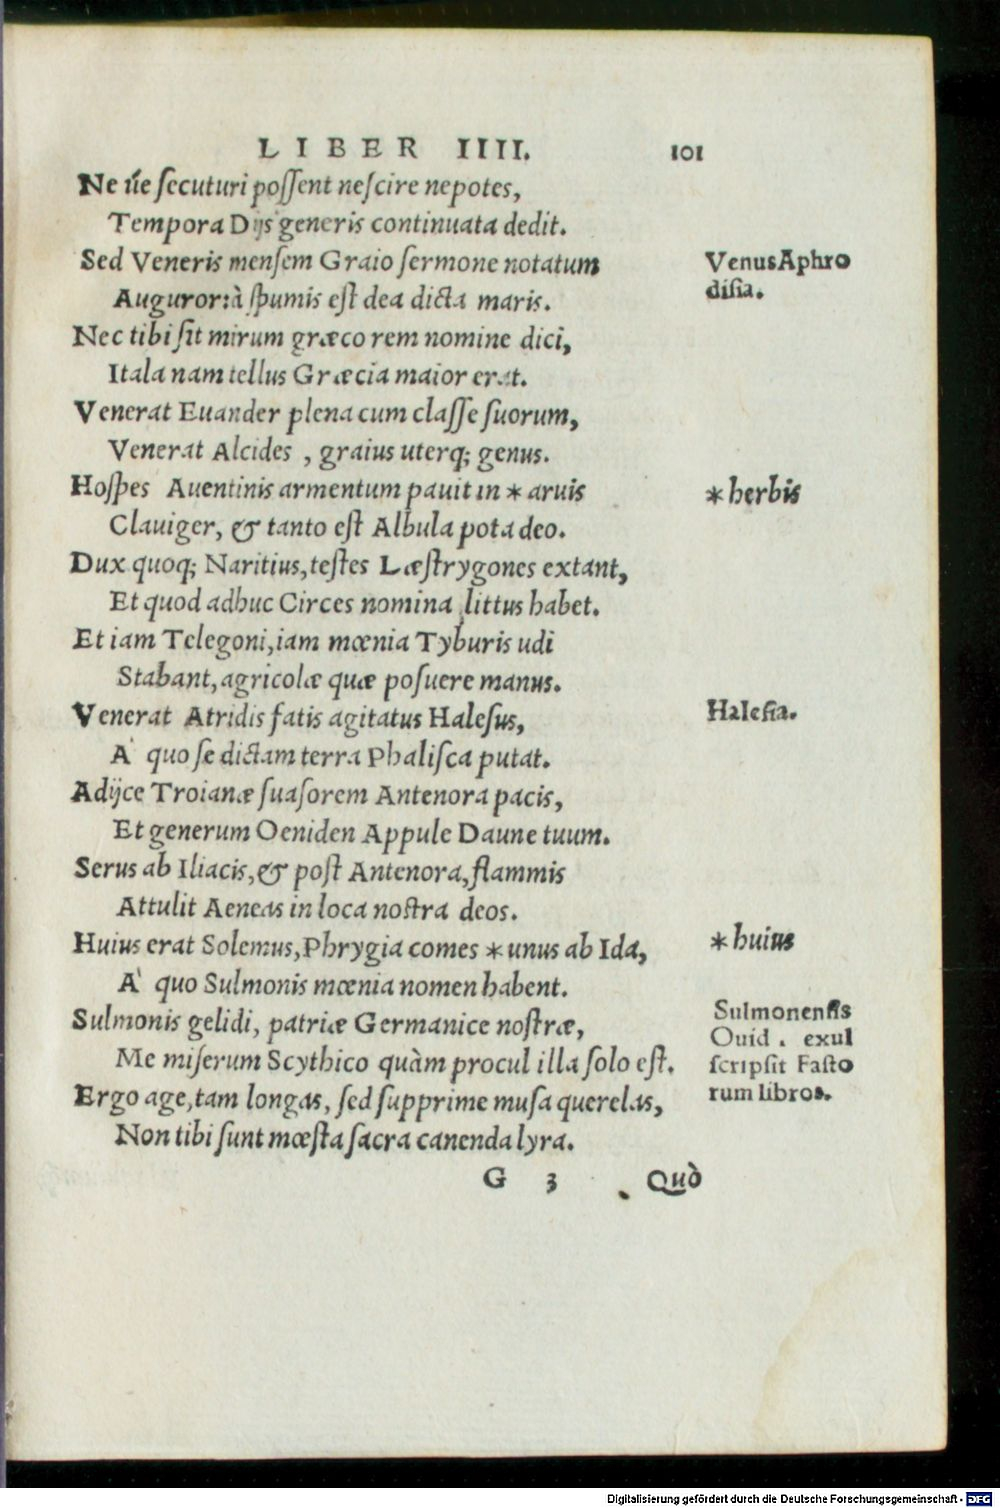 LIBER IIII. 101
Ne ūe ſecuturi poſſent neſcire nepotes,
Tempora Dijs generis continuata dedit.
Sed Veneris menſem Graio ſermone notatum
Auguror:à ſpumis eſt dea dicta maris.
Nec tibi ſit mirum græco rem nomine dici,
Itala nam tellus Græcia maior erat.
Venerat Euander plena cum claſſe ſuorum,
Venerat Alcides , graius uterq; genus.
Hoſpes Auentinis armentum pauit in * aruis
Clauiger, & tanto eſt Albula pota deo.
Dux quoq; Naritius,teſtes Læſtrygones extant,
Et quod adhuc Circes nomina littus habet.
Et iam Telegoni,iam mœnia Tyburis udi
Stabant,agricolæ quæ poſuere manus.
Venerat Atridis fatis agitatus Haleſus,
A' quo ſe dictam terra Phaliſca putat.
Adijce Troianæ ſuaſorem Antenora pacis,
Et generum Oeniden Appule Daune tuum.
Serus ab Iliacis,& poſt Antenora,flammis
Attulit Aeneas in loca noſtra deos.
Huius erat Solemus,Phrygia comes * unus ab Ida,
A' quo Sulmonis mœnia nomen habent.
Sulmonis gelidi, patriæ Germanice noſtræ,
Me miſerum Scythico quàm procul illa ſolo eſt.
Ergo age,tam longas, ſed ſupprime muſa querelas,
Non tibi ſunt mœſta ſacra canenda lyra.
G 3 Quò
Venus Aphro
diſia.
* herbis
Haleſia.
* huius
Sulmonenſis
Ouid . exul
ſcripſit Faſto
rum libros.
Digitalisierung gefördert durch die Deutsche Forschungsgemeinschaft - DFG